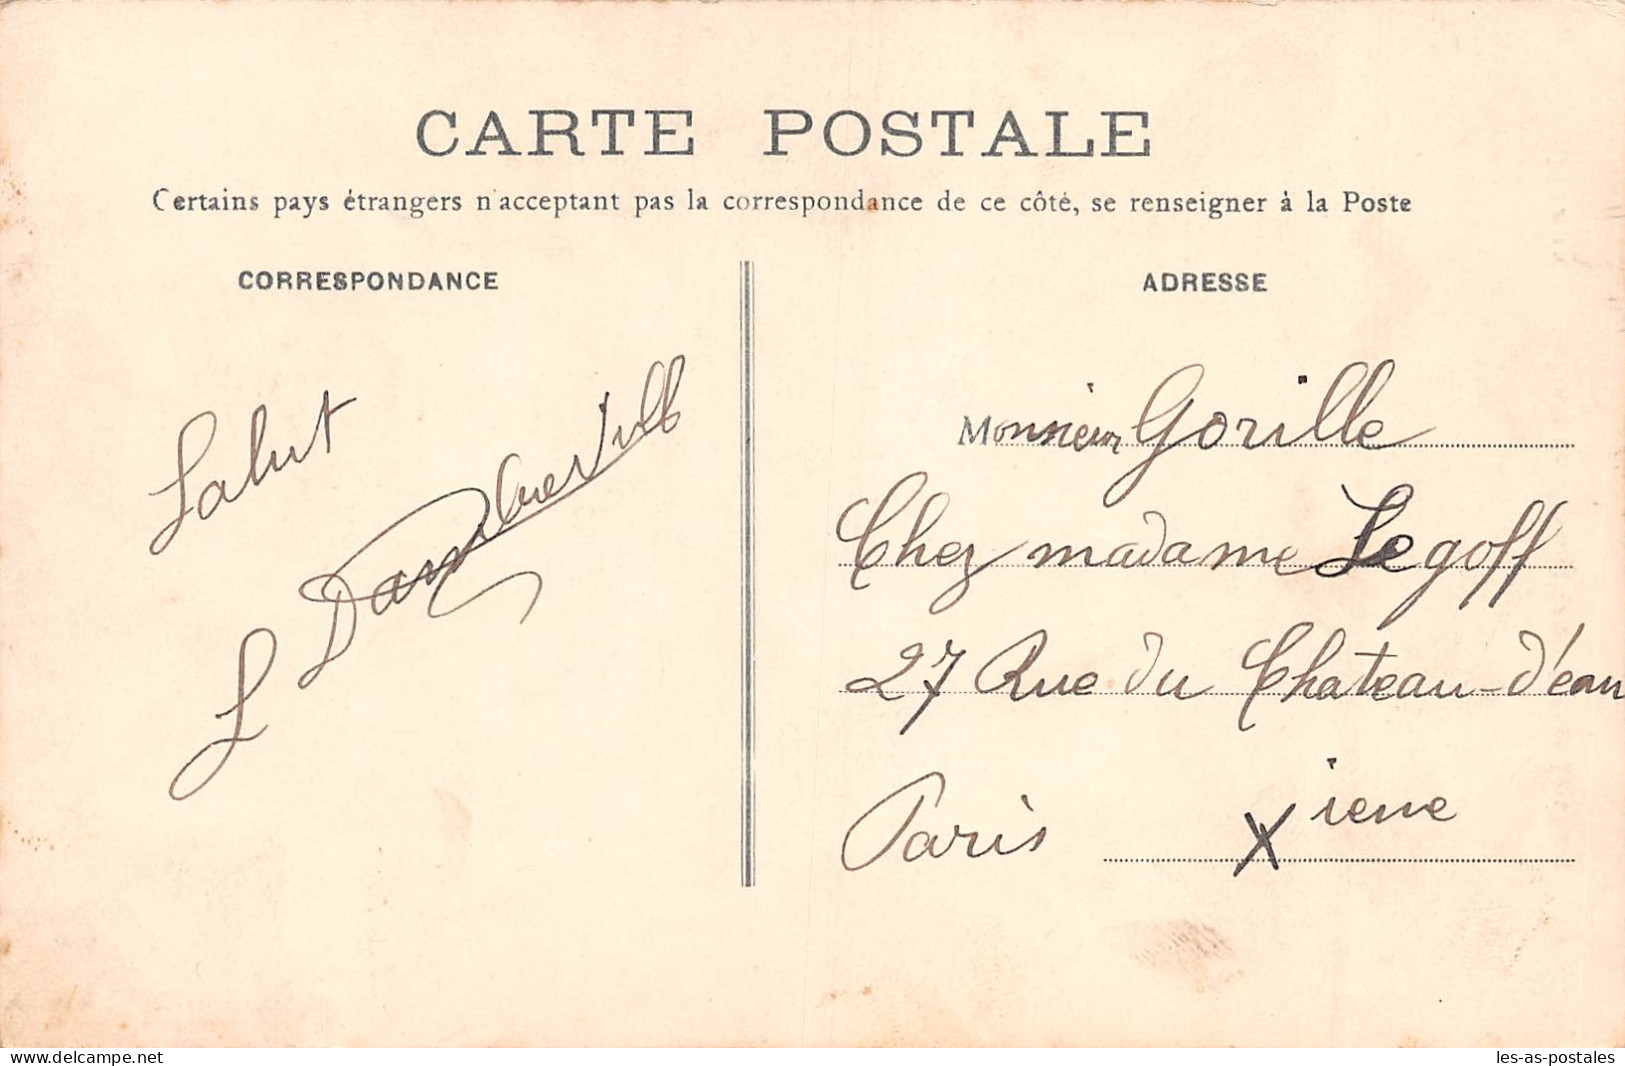 CARTE POSTALE
Certains pays étrangers n'acceptant pas la correspondance de ce côté, se renseigner à la Poste
CORRESPONDANCE
Salut
L
ADRESSE
Monsieur Gorille
Chez madame Le goff
27 Rue du Chateau-d'eau
Paris X ieme
www.delcampe.net
les-as-postales